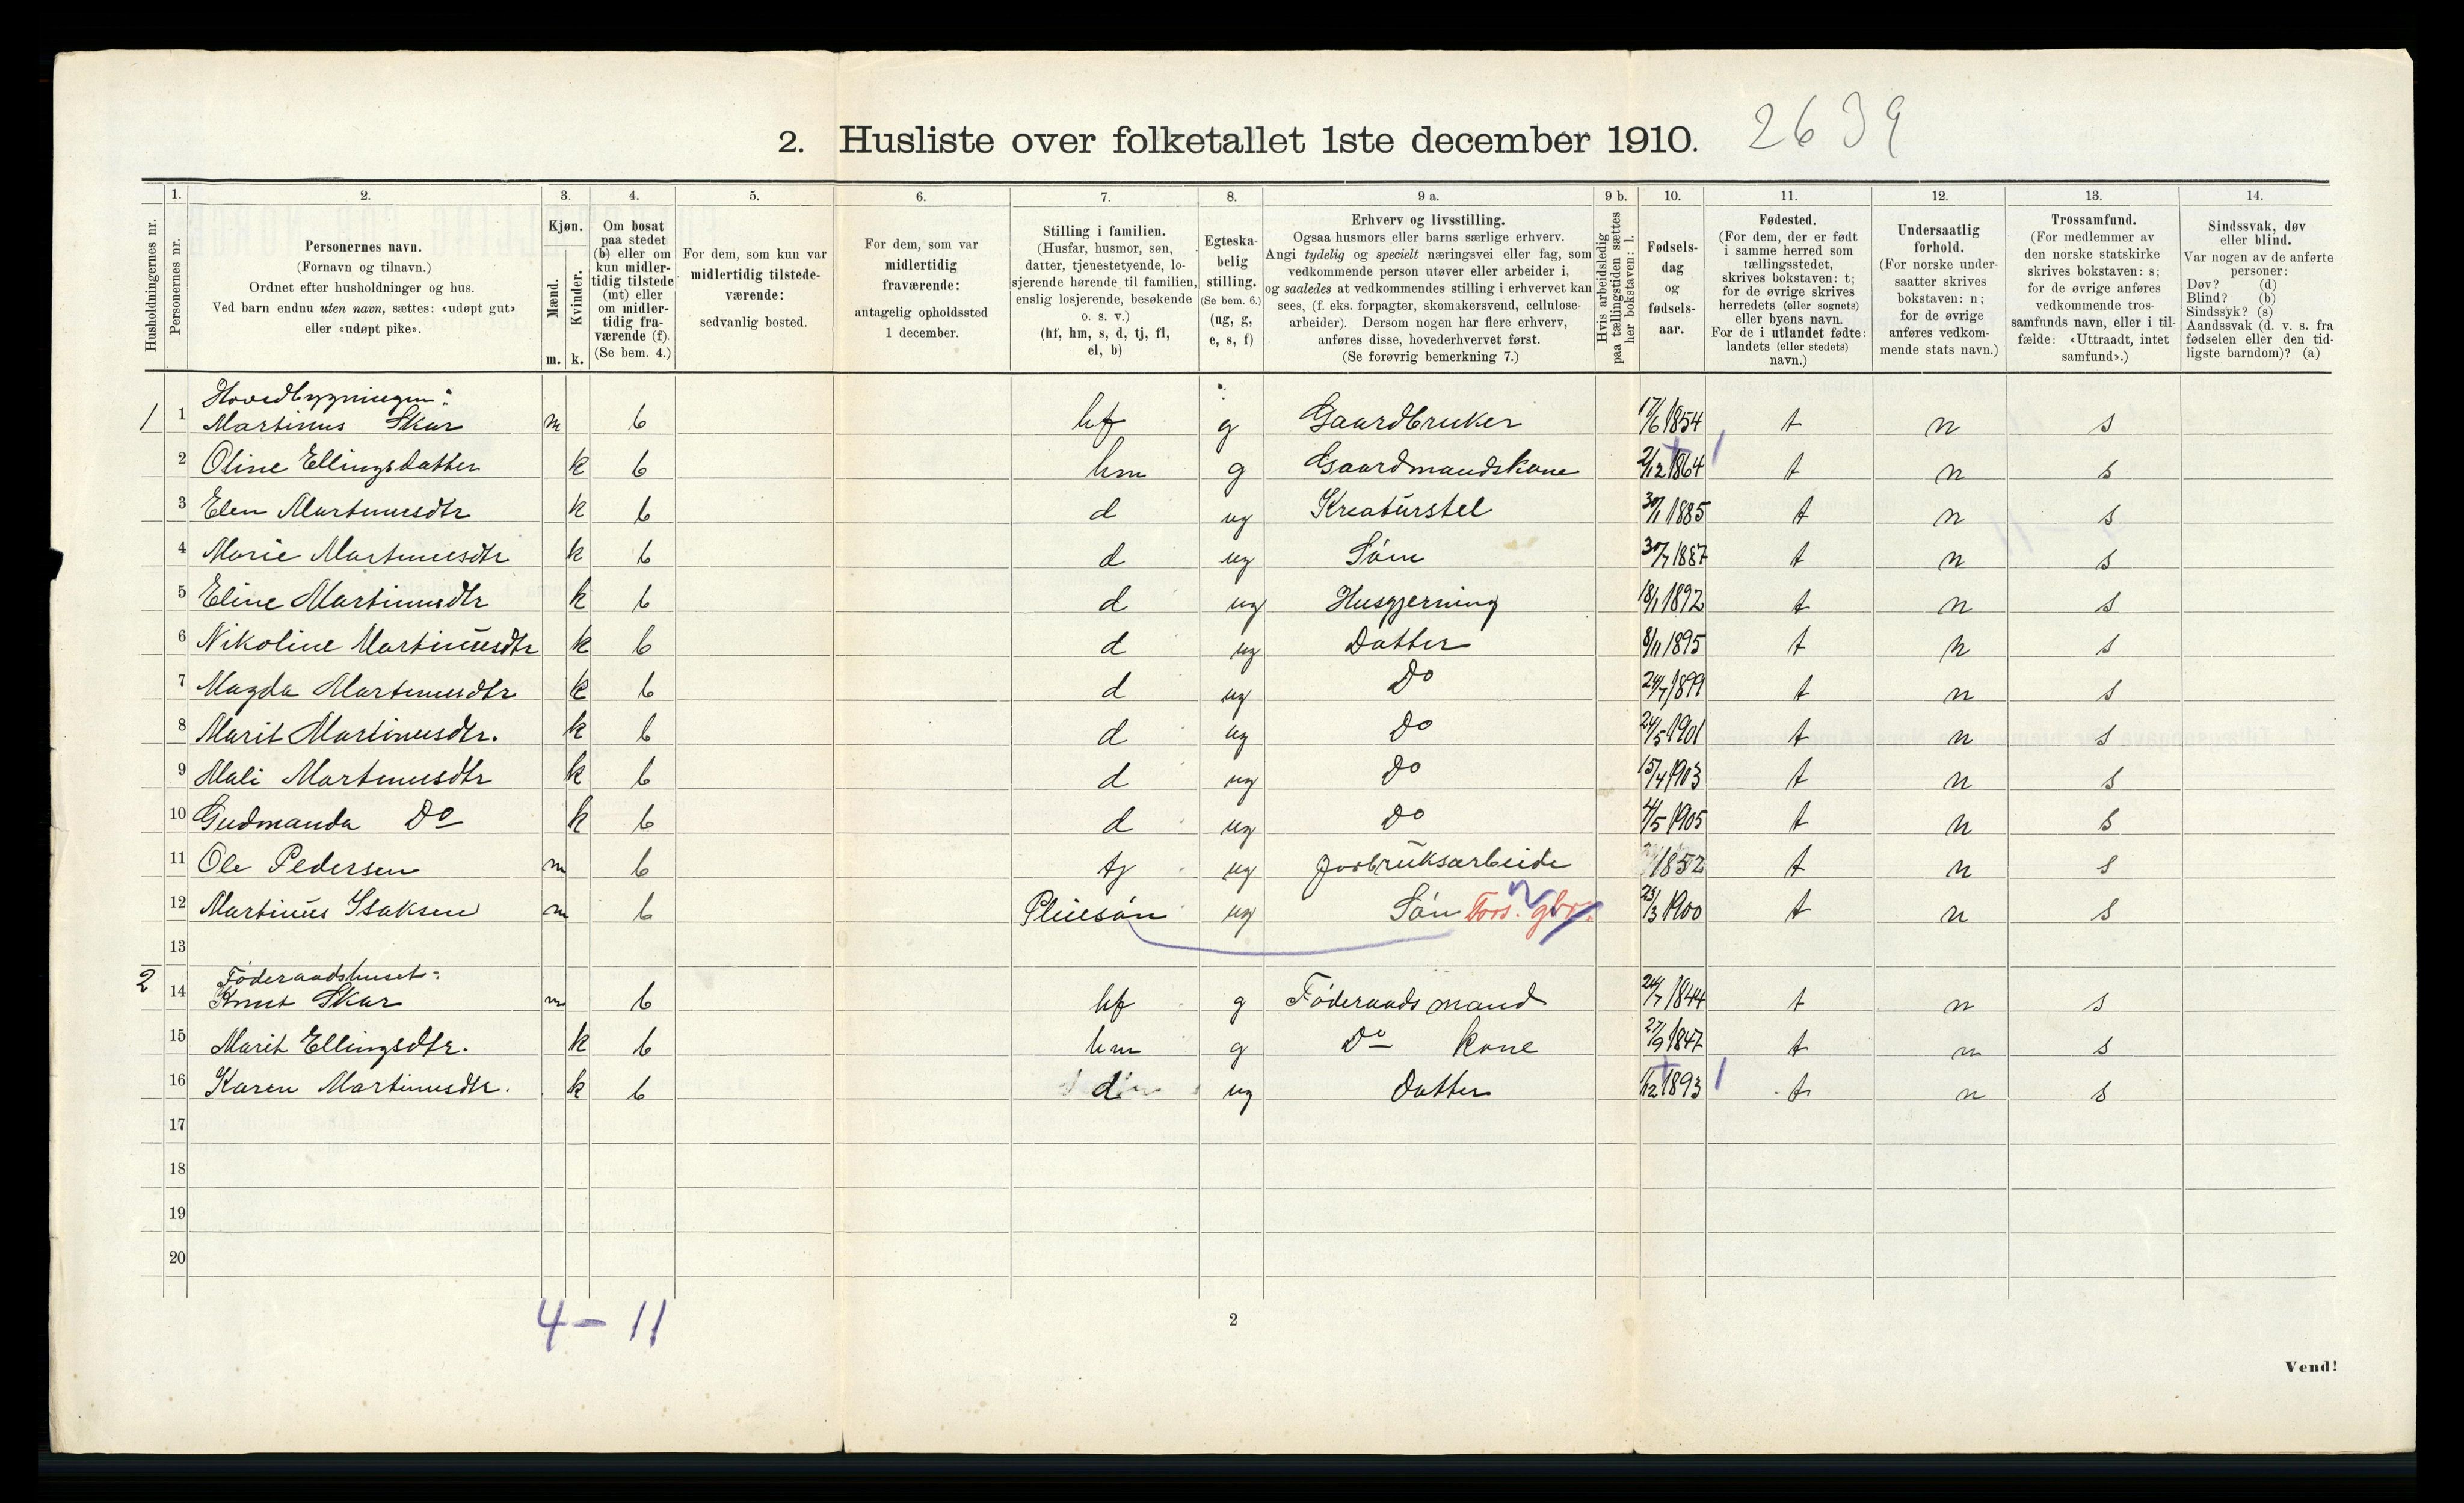 2. Husliste over folketallet 1ste december 1910. 2639
Husholdningernes nr.
1. Personernes nr.
2. Personernes navn.
(Fornavn og tilnavn.)
Ordnet efter husholdninger og hus.
Ved barn endnu uten navn, sættes: «udøpt gut»
eller «udøpt pike».
3. Kjøn.
Mænd. m.
Kvinder. k.
4. Om bosat
paa stedet
(b) eller om
kun midler-
tidig tilstede
(mt) eller
om midler-
tidig fra-
værende (f).
(Se bem. 4.)
5. For dem, som kun var
midlertidig tilstede-
værende:
sedvanlig bosted.
6. For dem, som var
midlertidig
fraværende:
antagelig opholdssted
1 december.
7. Stilling i familien.
(Husfar, husmor, søn,
datter, tjenestetyende, lo-
sjerende hørende til familien,
enslig losjerende, besøkende
o. s. v.)
(hf, hm, s, d, tj, fl,
el, b)
8. Egteska-
belig
stilling.
(Se bem. 6.)
(ug, g,
e, s, f)
9 a. Erhverv og livsstilling.
Ogsaa husmors eller barns særlige erhverv.
Angi tydelig og specielt næringsvei eller fag, som
vedkommende person utøver eller arbeider i,
og saaledes at vedkommendes stilling i erhvervet kan
sees, (f. eks. forpagter, skomakersvend, cellulose-
arbeider). Dersom nogen har flere erhverv,
anføres disse, hovederhvervet først.
(Se forøvrig bemerkning 7.)
9 b. Hvis arbeidsledig
paa tællingstiden sættes
her bokstaven: l.
10. Fødsels-
dag
og
fødsels-
aar.
11. Fødested.
(For dem, der er født
i samme herred som
tællingsstedet,
skrives bokstaven: t;
for de øvrige skrives
herredets (eller sognets)
eller byens navn.
For de i utlandet fødte:
landets (eller stedets)
navn.)
12. Undersaatlig
forhold.
(For norske under-
saatter skrives
bokstaven: n;
for de øvrige
anføres vedkom-
mende stats navn.)
13. Trossamfund.
(For medlemmer av
den norske statskirke
skrives bokstaven: s;
for de øvrige anføres
vedkommende tros-
samfunds navn, eller i til-
fælde: «Uttraadt, intet
samfund».)
14. Sindssvak, døv
eller blind.
Var nogen av de anførte
personer:
Døv? (d)
Blind? (b)
Sindssyk? (s)
Aandssvak (d. v. s. fra
fødselen eller den tid-
ligste barndom)? (a)
Hovedbygningen:
1 1 Martinus Skar m b hf g Gaardbruker 17/6 1854 t n s
2 Oline Ellingsdatter k b hm g Gaardmandskone 2/12 1864 t n s
3 Elen Martinusdtr k b d ug Kreaturstel 30/1 1885 t n s
4 Marie Martinusdtr k b d ug Søm 30/7 1887 t n s
5 Eline Martinusdtr k b d ug Husgjerning 18/1 1892 t n s
6 Nikoline Martinusdtr k b d ug Datter 8/11 1895 t n s
7 Magda Martinusdtr k b d ug Do 24/7 1899 t n s
8 Marit Martinusdtr. k b d ug Do 24/5 1901 t n s
9 Mali Martinusdtr k b d ug Do 15/4 1903 t n s
10 Gudmanda Do k b d ug Do 4/5 1905 t n s
11 Ole Pedersen m b tj ug Jorbruksarbeide 1852 t n s
12 Martinus Isaksen m b Pleiesøn ug Søn Fors. gbr. 23/3 1900 t n s
13
Føderaadshuset:
2 14 Knut Skar m b hf g Føderaadsmand 24/7 1844 t n s
15 Marit Ellingsdtr. k b hm g Do kone 27/9 1847 t n s
16 Karen Martinusdtr. k b d ug Datter 1/12 1893 t n s
17
18
19
20
4 - 11
2
Vend!